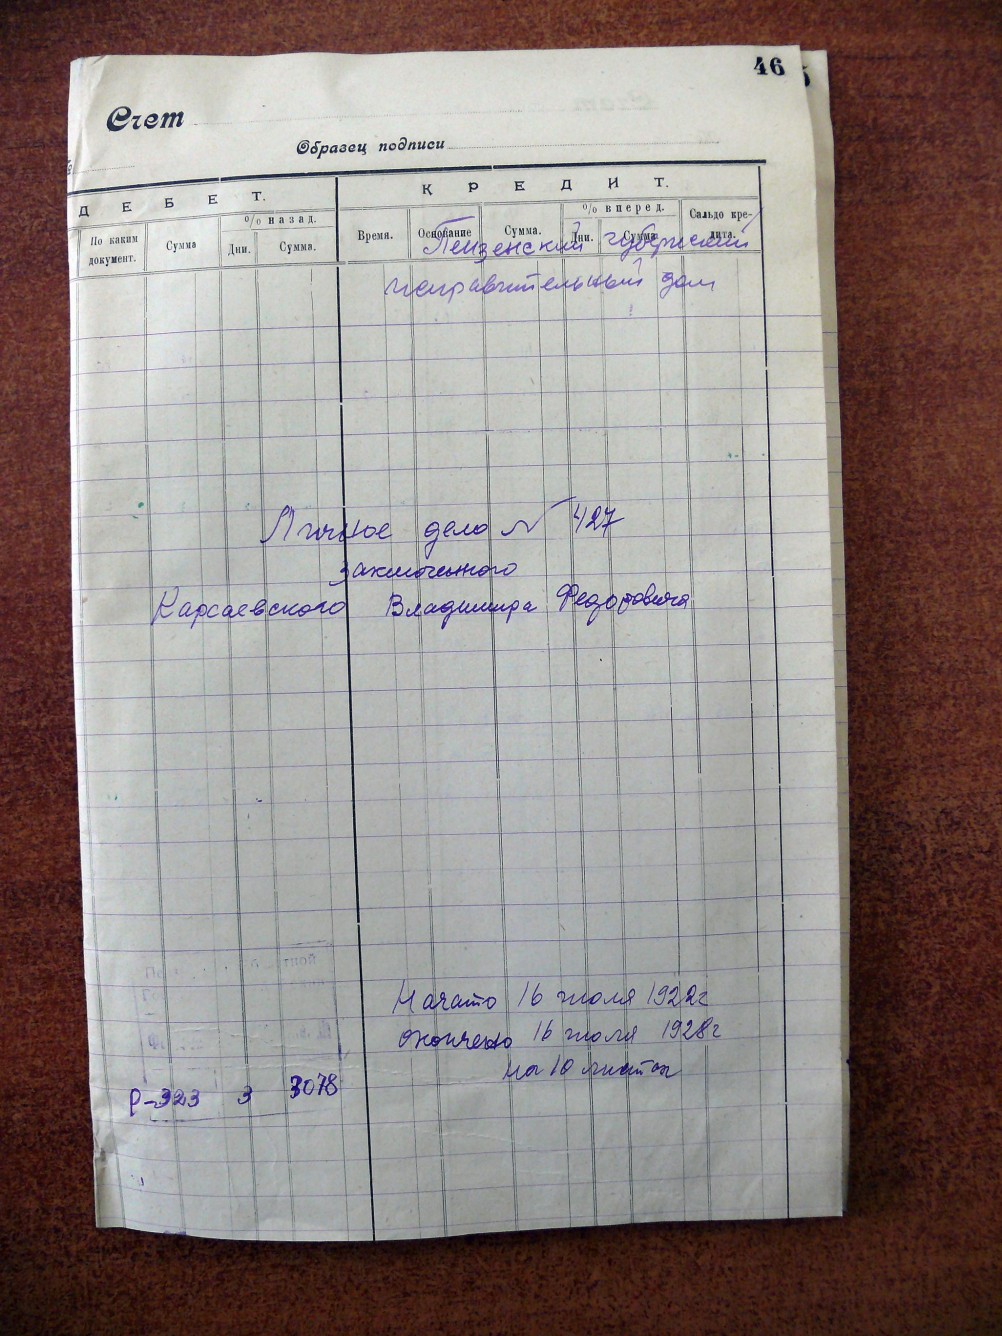 46
Счет
Образец подписи
ДЕБЕТ.
КРЕДИТ.
По каким документ.
Сумма
% назад.
Дни.
Сумма.
Время.
Основание
Сумма.
% вперед.
Дни.
Сумма
Сальдо кредита.
Пензенский губернский
исправительный дом
Личное дело № 427
заключенного
Карсаевского Владимира Федоровича
Начато 16 июля 1922г
Окончено 16 июля 1928г
на 10 листах
Р-323 3 3078